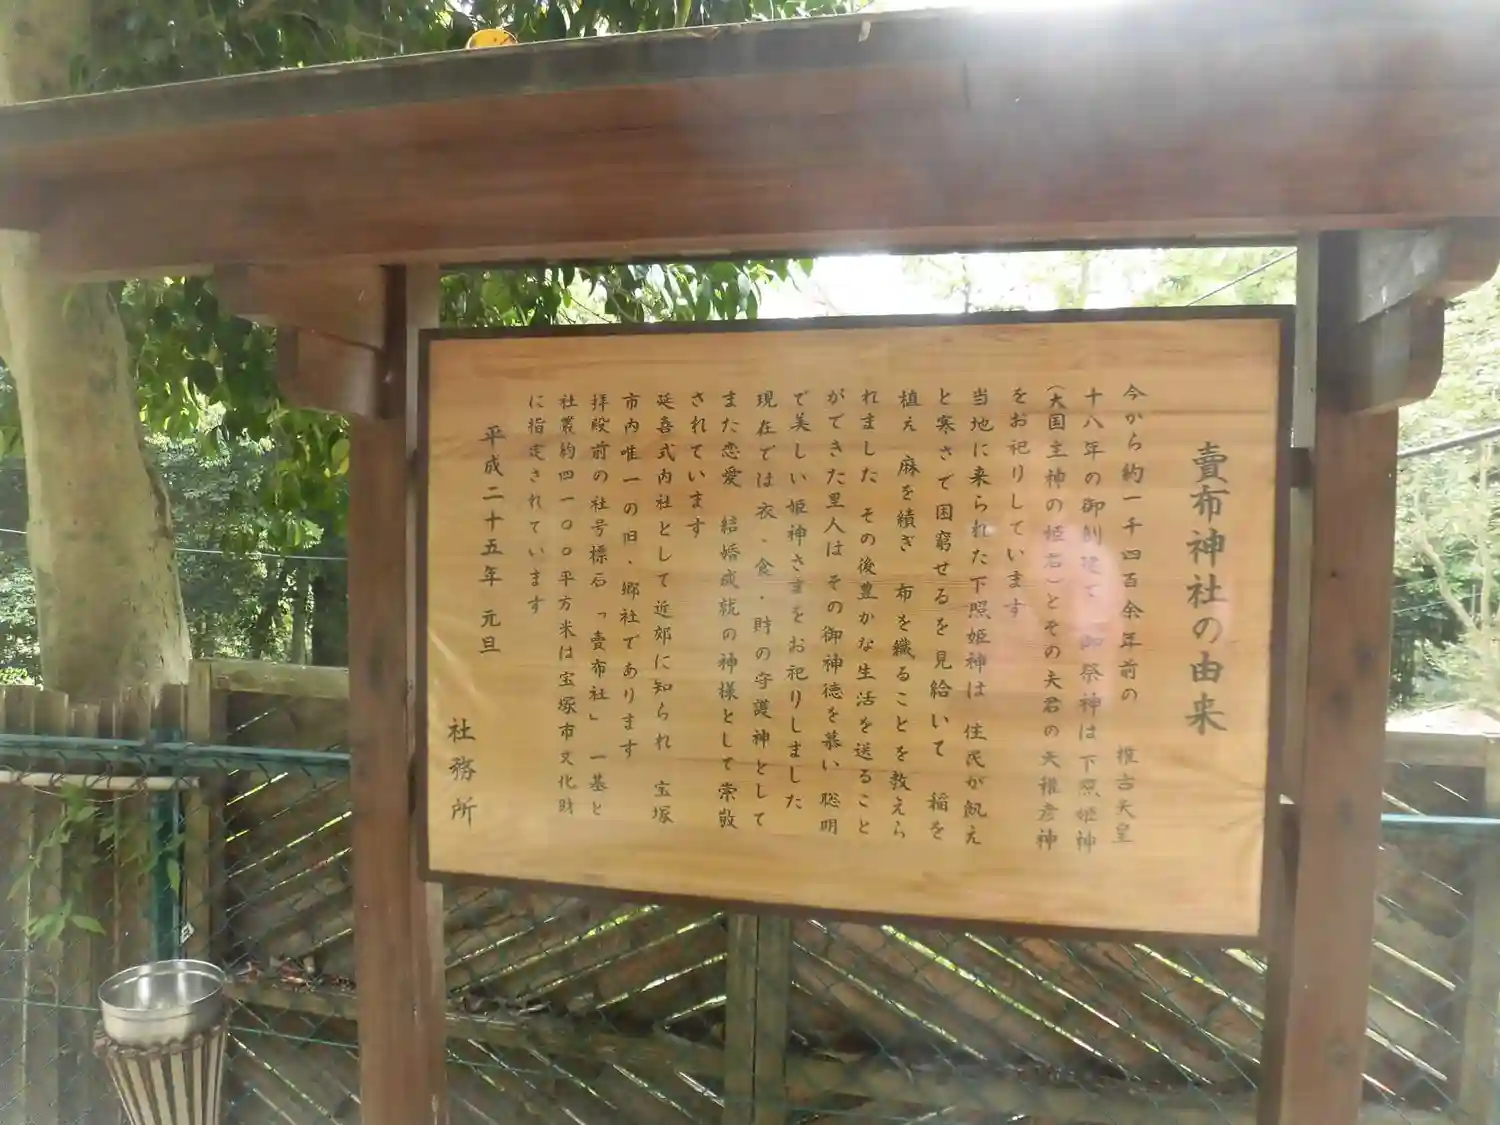 賣布神社の由来
今から約一千四百余年前の　推古天皇
十八年の御創建で　御祭神は下照姫神
（大国主神の姫君）とその夫君の天稚彦神
をお祀りしています
当地に来られた下照姫神は　住民が飢え
と寒さで困窮せるを見給いて　稲を
植え　麻を績ぎ　布を織ることを教えら
れました　その後豊かな生活を送ること
ができた里人はその御神徳を慕い　聡明
で美しい姫神さまをお祀りしました
現在では衣・食・財の守護神として
また恋愛　結婚成就の神様として崇敬
されています
延喜式内社として近郊に知られ　宝塚
市内唯一の旧・郷社であります
拝殿前の社号標石「賣布社」一基と
社叢約四一〇〇平方米は宝塚市文化財
に指定されています
平成二十五年　元旦
社務所